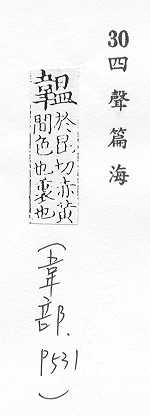 30 四聲篇海
韞
於昆切赤黃
間色也裹也
(韋部. P531)